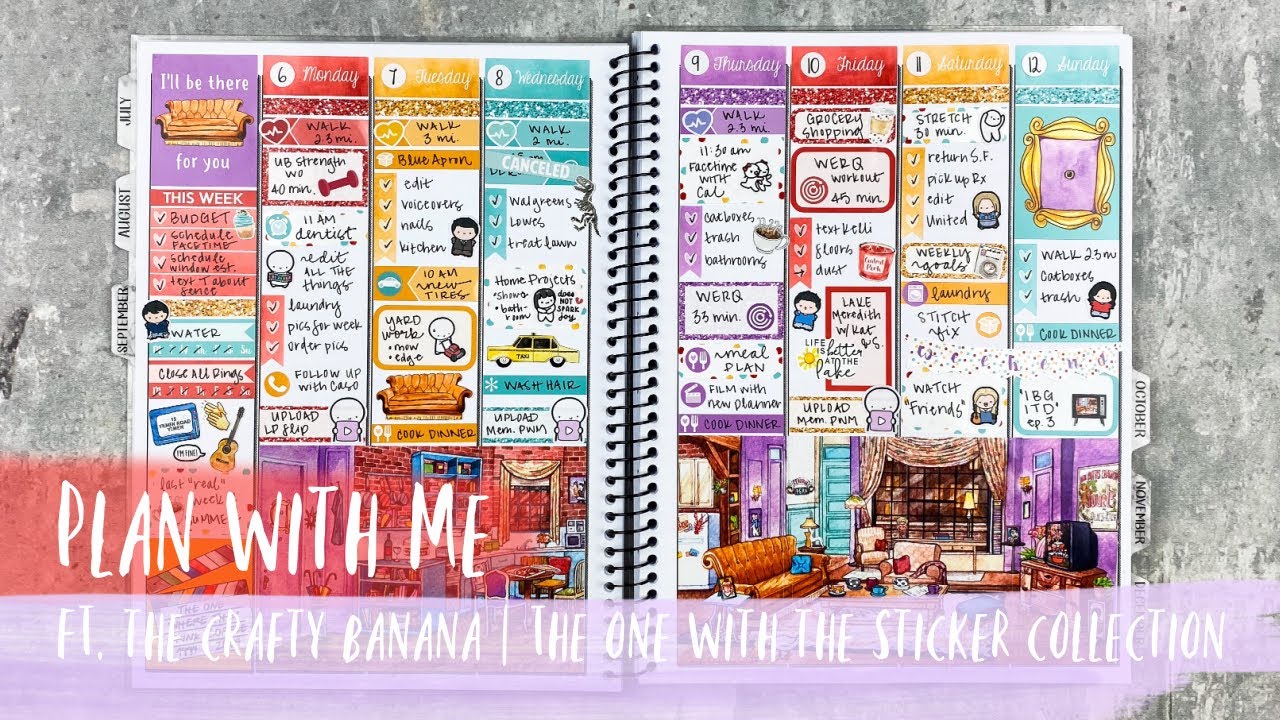 I'll be there
for you
THIS WEEK
BUDGET
schedule
FACETIME
schedule
window est.
text T about
fence
WATER
Close All Rings
I'M FINE!
last "real"
week
6 Monday
WALK
2.3 mi.
UB Strength
WO
40 min.
11 AM
dentist
edit
ALL THE
things
laundry
pics for week
order pics
FOLLOW UP
with CASO
UPLOAD
LP flip
7 Tuesday
WALK
3 mi.
Blue Apron
edit
voiceovers
nails
kitchen
10 AM
new
TIRES
YARD
work
• mow
• edge
COOK DINNER
8 Wednesday
WALK
2 mi.
CANCELED
Walgreens
Lowes
treat lawn
Home Projects
does
NOT
SPARK
joy
TAXI
WASH HAIR
UPLOAD
Mem. PWM
9 Thursday
WALK
2.3 mi.
11:30 am
Facetime
WITH
Cal
Catboxes
trash
bathrooms
WERQ
33 min.
meal
PLAN
FILM with
new planner
COOK DINNER
10 Friday
GROCERY
shopping
WERQ
workout
45 min.
text Kelli
floors
dust
LAKE
Meredith
W/ Kat
& S.
LIFE
IS better
AT THE
lake
UPLOAD
Mem. PWM
11 Saturday
STRETCH
30 min.
return S.F.
pick up Rx
edit
United
WEEKLY
goals
laundry
STITCH
fix
weekend
WATCH
"Friends"
12 Sunday
WALK 2.3 m
Catboxes
trash
COOK DINNER
"IBG
LTD"
ep. 3
JULY
AUGUST
SEPTEMBER
OCTOBER
NOVEMBER
PLAN WITH ME
FT. THE CRAFTY BANANA | THE ONE WITH THE STICKER COLLECTION